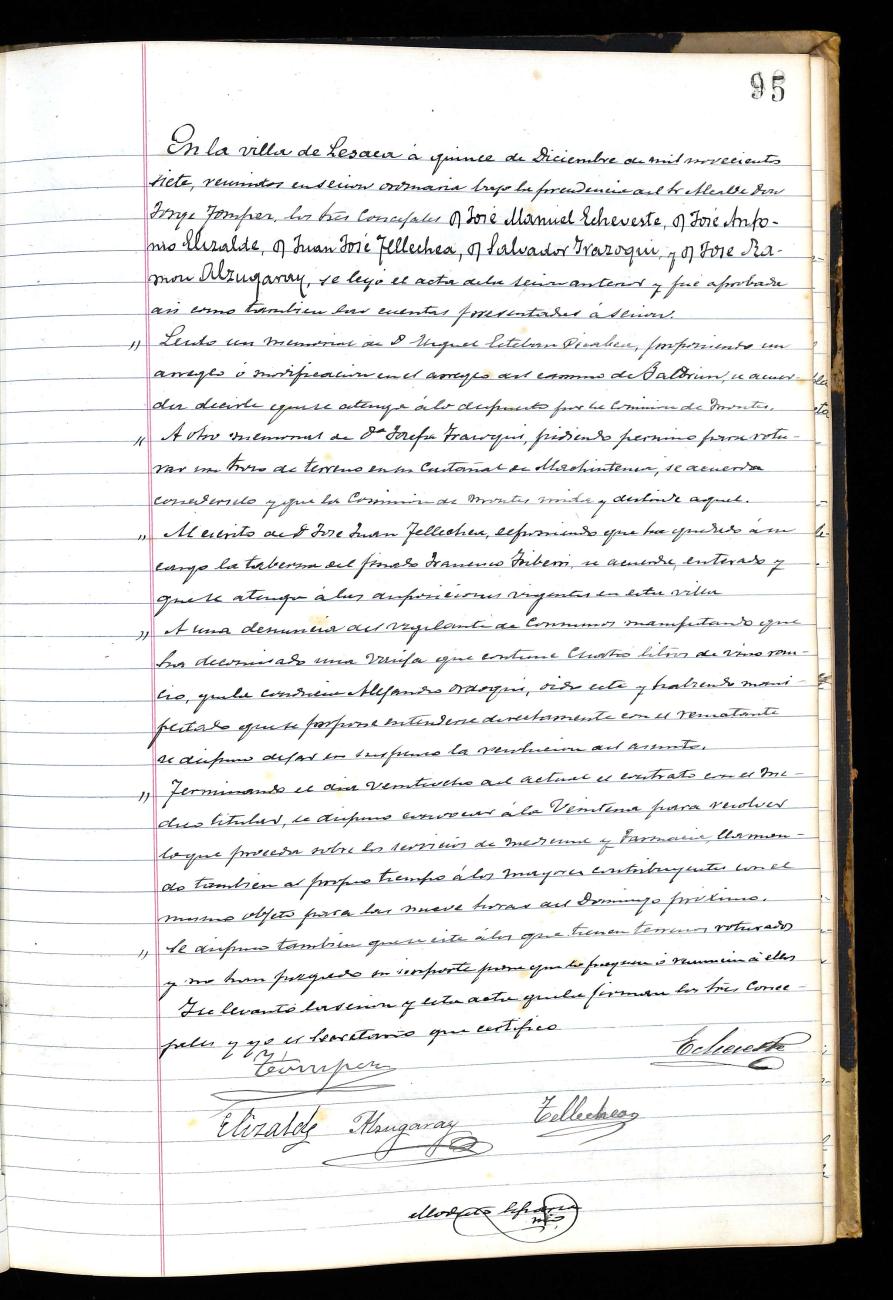 95
En la villa de Lesaca á quince de Diciembre de mil novecientos
siete, reunidos en sesion ordinaria bajo la presidencia del Sr Alcalde Don
Jorge Tomper, los tres Concejales D José Manuel Echeveste, D José Anto-
nio Elizalde, D Juan José Tellechea, D Salvador Irazoqui, y D Jose Ra-
mon Alzugaray, se leyó el acta de la sesion anterior y fué aprobada
asi como tambien las cuentas presentadas á sesion.
" Leido un memorial de D Miguel Esteban, proponiendo un
arreglo ó modificacion en el arreglo del camino de, se acuer-
da decirle que se atenga á lo dispuesto por la Comision de Montes.
" A otro memorial de Dª Josefa Irazoqui, pidiendo permiso para rotu-
rar un trozo de terreno en su Castañal de, se acuerda
concederselo y que la Comision de Montes mida y deslinde aquel.
" Al escrito de D Jose Juan Tellechea, esponiendo que ha quedado á su
cargo la taberna del finado Francisco, se acuerda, enterado y
que se atenga á las disposiciones vigentes en esta villa
" A una denuncia del vigilante de Consumos manifestando que
ha decomisado una que contiene Cuatro litros de vino ran-
cio, que la conducia Alejandro Ordoqui, oido este y habiendo mani-
festado que se propone entenderse directamente con el rematante
se dispuso dejar en suspenso la resolucion del asunto.
" Terminando el dia veintiocho del actual el contrato con el Me-
dico titular, se dispuso convocar á la Veintena para resolver
lo que proceda sobre los servicios de medicina y Farmacia, llaman-
do tambien al propio tiempo á los mayores contribuyentes con el
mismo objeto para las nueve horas del Domingo próximo.
" Se dispuso tambien que se cite á los que tienen terrenos roturados
y no han pagado su importe para que lo paguen ó renuncien á ellos
Se levantó la sesion y esta acta que la firman los tres Conce-
jales y yo el Secretario que certifico
Tomper
Echeveste
Elizalde Alzugaray Tellechea
Modesto